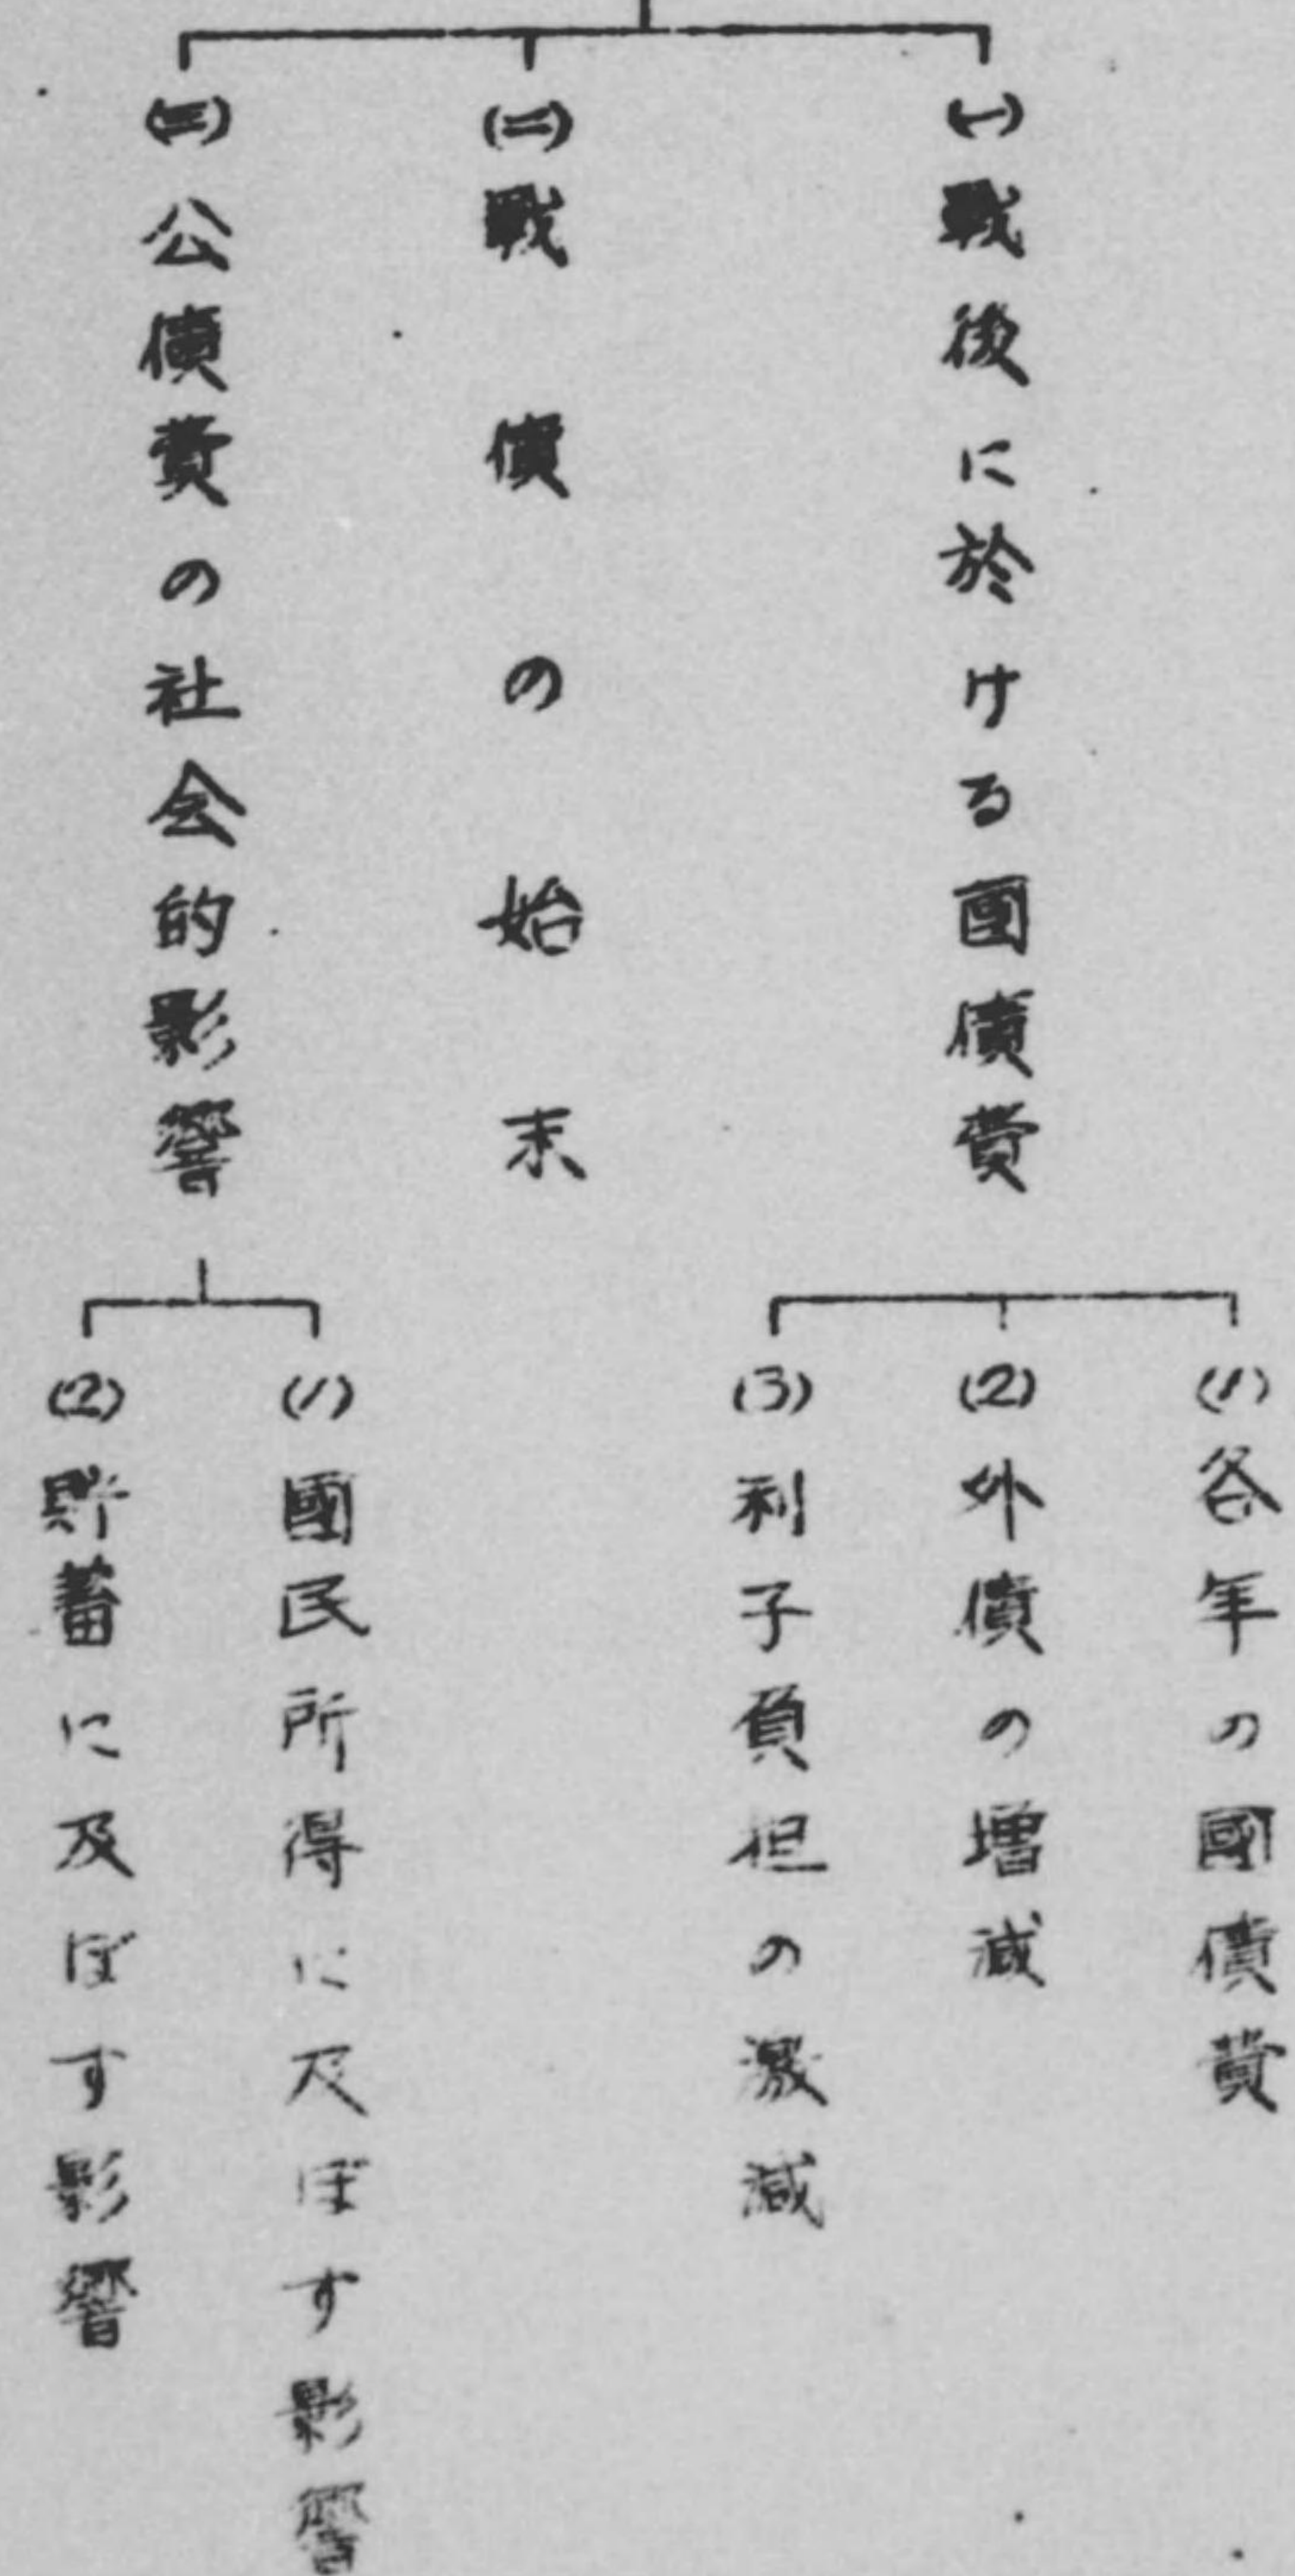 (一)戦後に於ける國債費
(1)各年の國債費
(2)外債の増減
(3)利子負担の激減
(二)戦債の始末
(三)公債費の社会的影響
(1)國民所得に及ぼす影響
(2)貯蓄に及ぼす影響